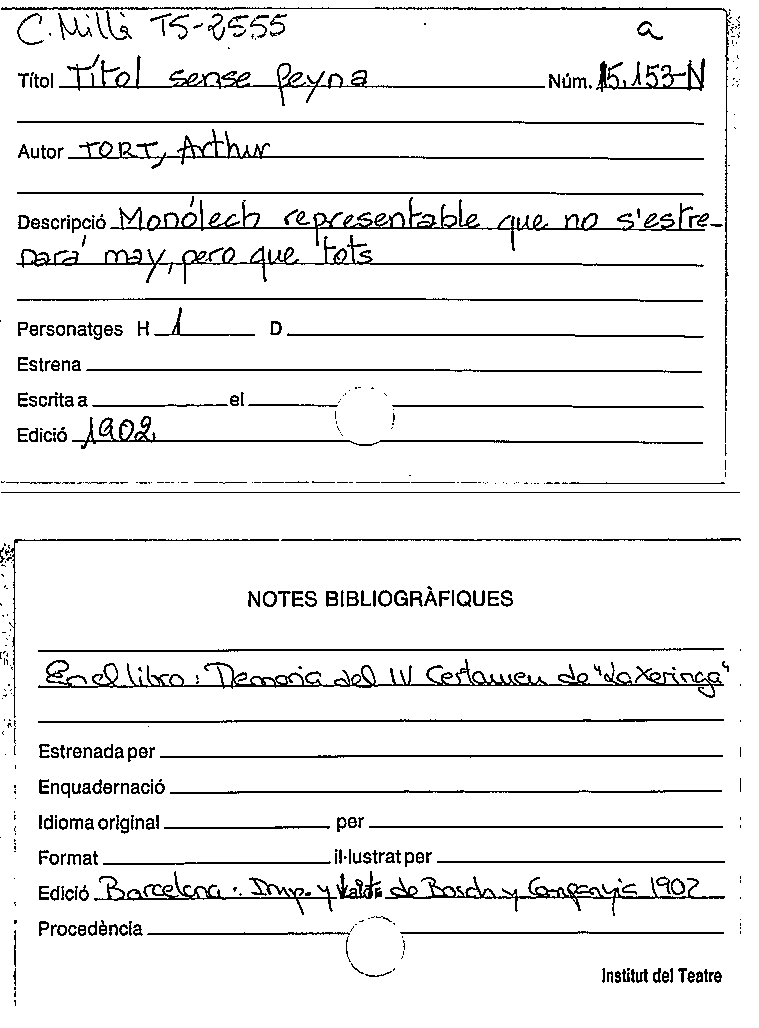 C. Millà TS-2555 a
Títol Títol sense feyna Núm. 15.153-N
Autor TORT, Arthur
Descripció Monólech representable que no s'estre-
nará may, pero que tots
Personatges H 1 D
Estrena
Escrita a el
Edició 1902
NOTES BIBLIOGRÀFIQUES
En el libro: Memoria del IV Certamen de "La Xeringa"
Estrenada per
Enquadernació
Idioma original per
Format il·lustrat per
Edició Barcelona: Imp. y de Bosch y Companyia 1902
Procedència
Institut del Teatre